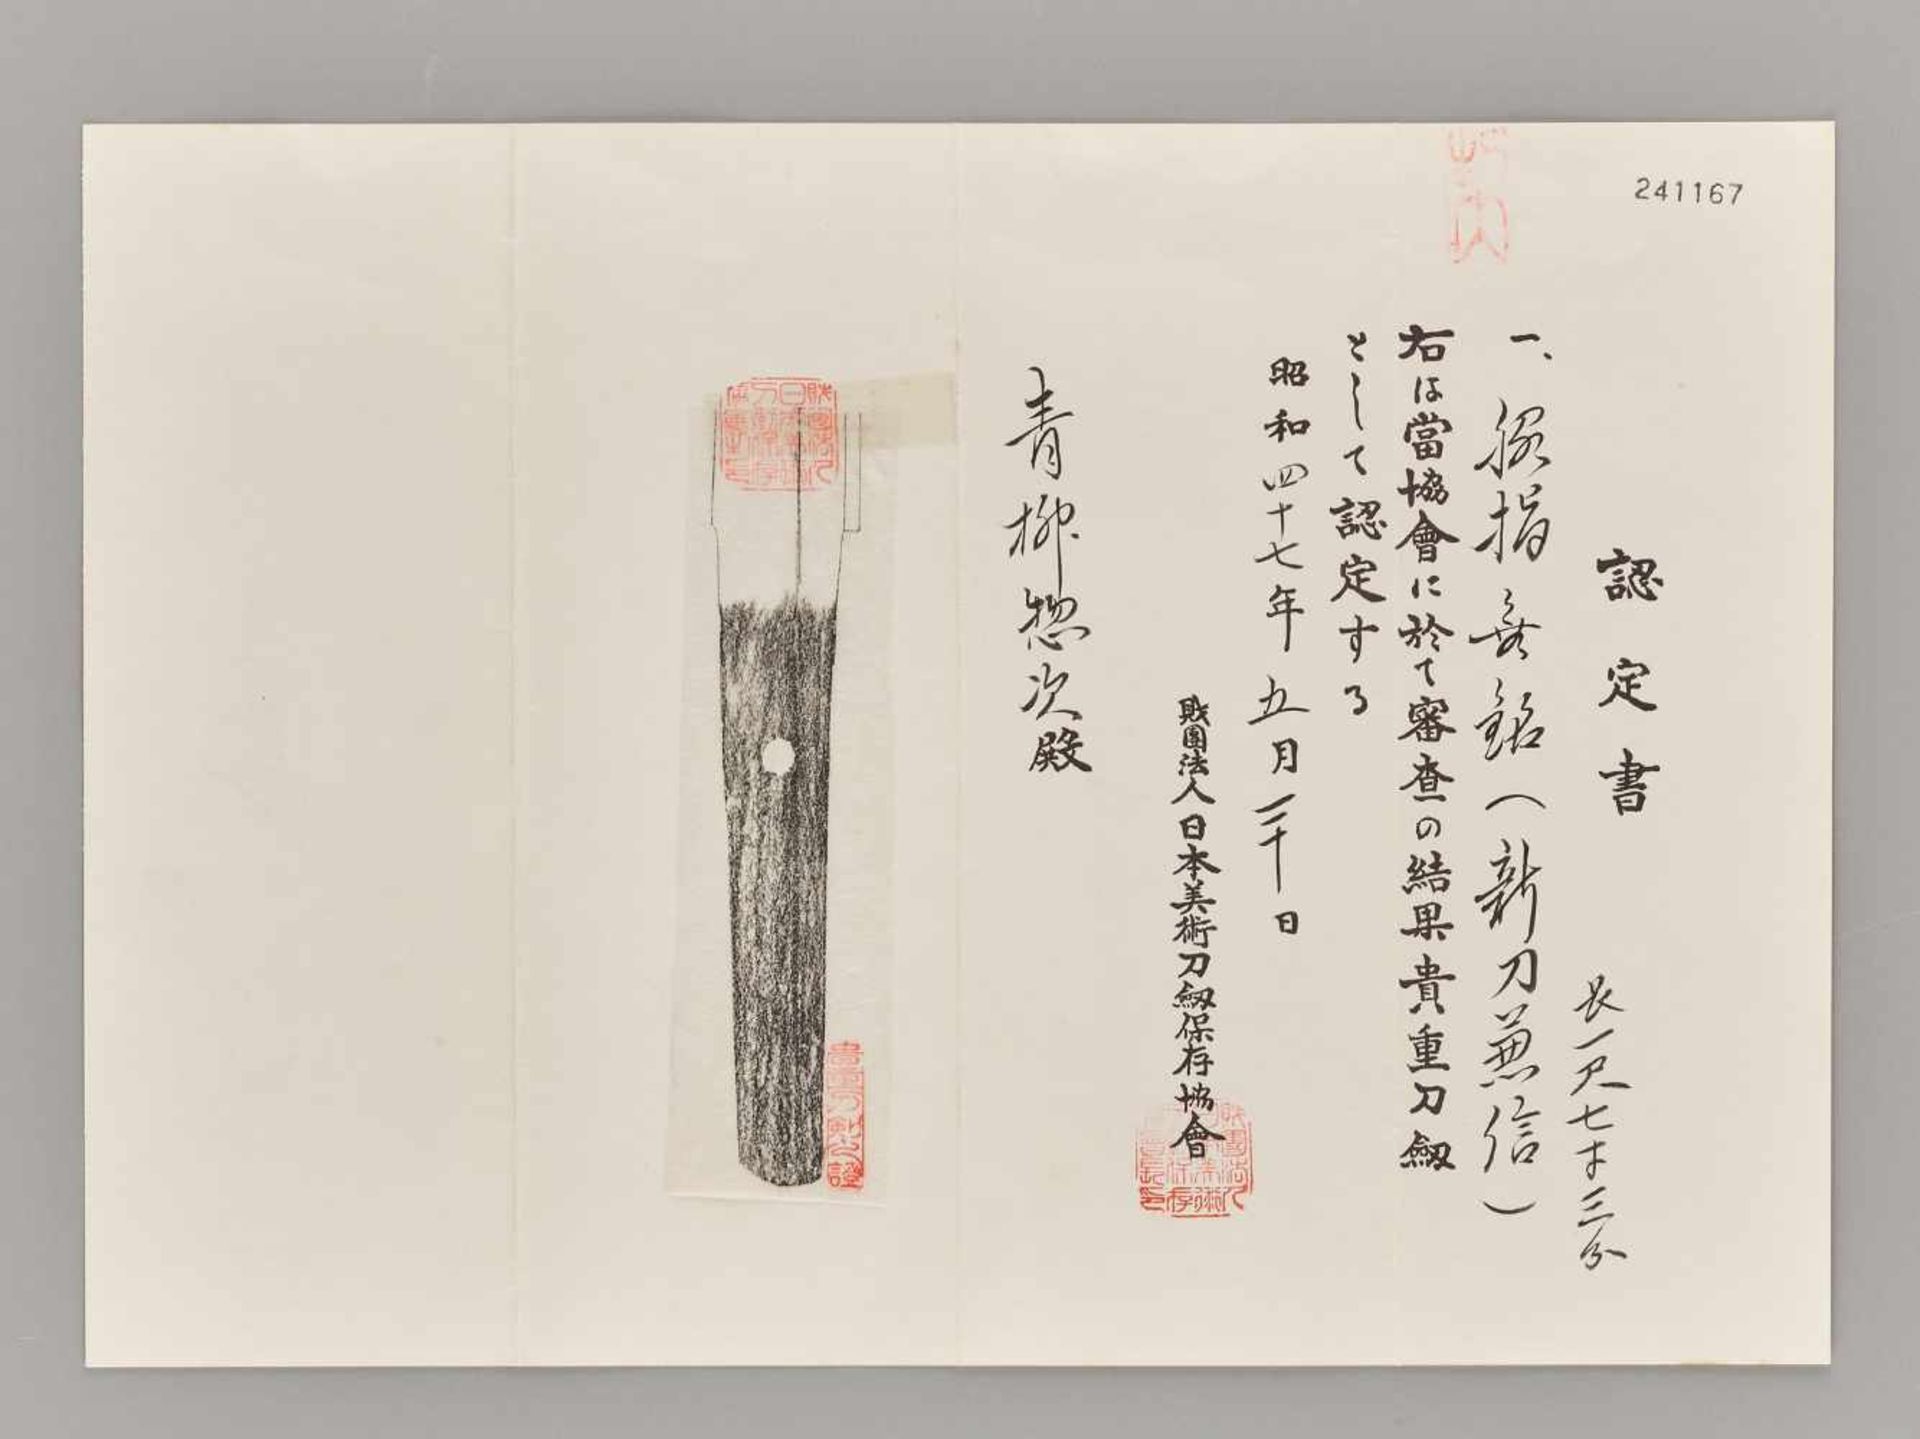 241167
認定書
長一尺七寸三分
一、脇指 無銘(新刀兼信)
右は當協會に於て審査の結果貴重刀劔
として認定する
昭和四十七年五月二十日
財團法人日本美術刀劔保存協會
青柳惣次殿
貴重刀劍之證